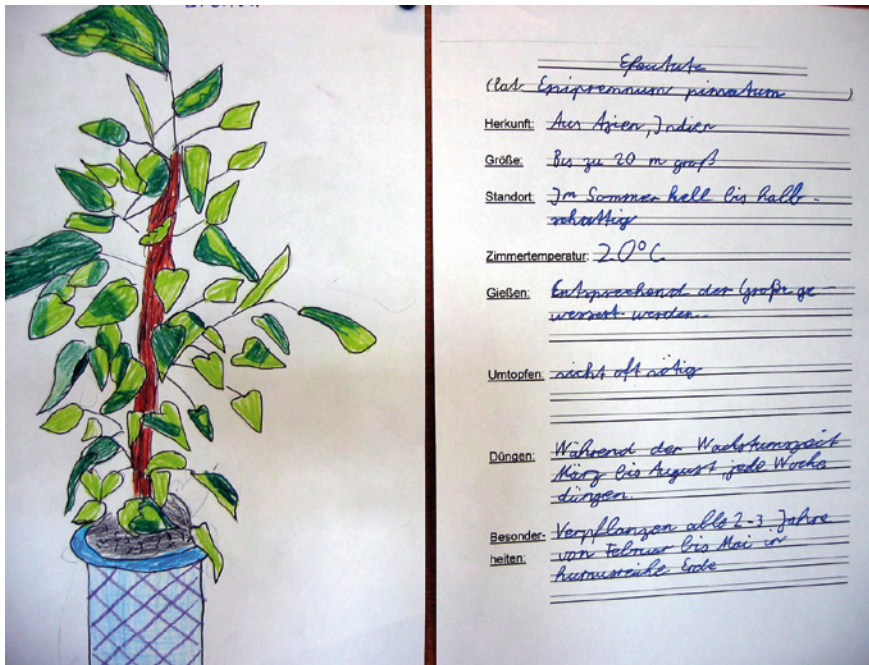 Efeutute
(lat. Epipremnum pinnatum)
Herkunft: Aus Asien, Indien
Größe: Bis zu 20 m groß
Standort: Im Sommer hell bis halb-
schattig
Zimmertemperatur: 20°C
Gießen: Entsprechend der Größe ge-
wessert werden.
Umtopfen: nicht oft nötig
Düngen: Während der Wachstumszeit
März bis August jede Woche
düngen.
Besonder- Verpflanzen alle 2-3 Jahre
heiten: von Februar bis Mai in
humusreiche Erde